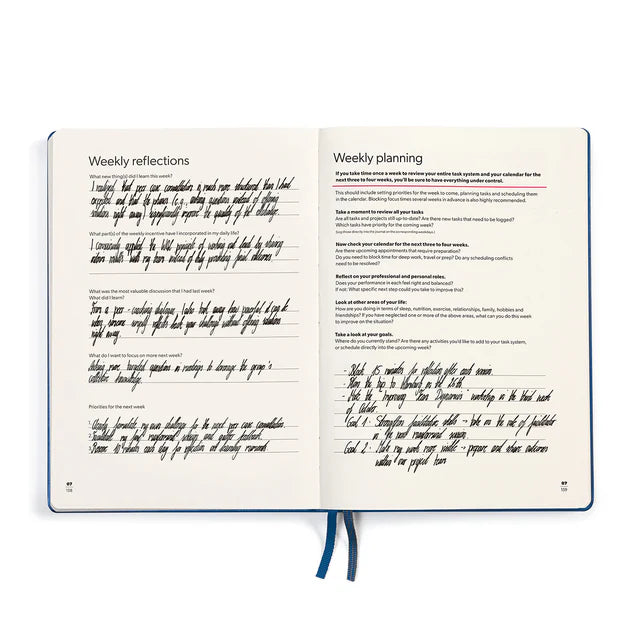 Weekly reflections
What new thing(s) did you learn this week?
I realized that peer case consultation is much more structured than I had
expected and that the phases (e.g., asking questions instead of offering
solutions right away) significantly improve the quality of the dialogue.
What part(s) of the weekly incentive have I incorporated in my daily life?
I consciously applied the WOL principle of working out loud by sharing
interim results with my team instead of only providing final outcomes.
What was the most valuable discussion that I had last week?
What did I learn?
From a peer-coaching dialogue, I also took away how powerful it can be
when someone simply reflects back your challenge without offering solutions
right away.
What do I want to focus on more next week?
Asking more targeted questions in meetings to leverage the group's
collective knowledge.
Priorities for the next week
Clearly formulate my own challenge for the next peer case consultation.
Facilitate my first and gather feedback.
Reserve 10 minutes each day for reflection and journaling
07
138
Weekly planning
If you take time once a week to review your entire task system and your calendar for the
next three to four weeks, you'll be sure to have everything under control.
This should include setting priorities for the week to come, planning tasks and scheduling them
in the calendar. Blocking focus times several weeks in advance is also highly recommended.
Take a moment to review all your tasks
Are all tasks and projects still up-to-date? Are there new tasks that need to be logged?
Which tasks have priority for the coming week?
(Log those directly into the journal on the corresponding weekdays.)
Now check your calendar for the next three to four weeks.
Are there upcoming appointments that require preparation?
Do you need to block time for deep work, travel or prep? Do any scheduling conflicts
need to be resolved?
Reflect on your professional and personal roles.
Does your performance in each feel right and balanced?
If not: What specific next step could you take to improve this?
Look at other areas of your life:
How are you doing in terms of sleep, nutrition, exercise, relationships, family, hobbies and
friendships? If you have neglected one or more of the above areas, what can you do this week
to improve on the situation?
Take a look at goals.
Where do you currently stand? Are there any activities you'd like to add to your task system,
or schedule directly into the upcoming week?
- Block 15 minutes for reflection after each session.
- Plan the trip to Hamburg on the 25th.
- Move the "Improving Team Dynamics" workshop to the third week
of October.
Goal 1: Strengthen facilitation skills → take on the role of facilitator
in the next session.
Goal 2: Make my work more visible → prepare and share outcomes
within our project team
07
139